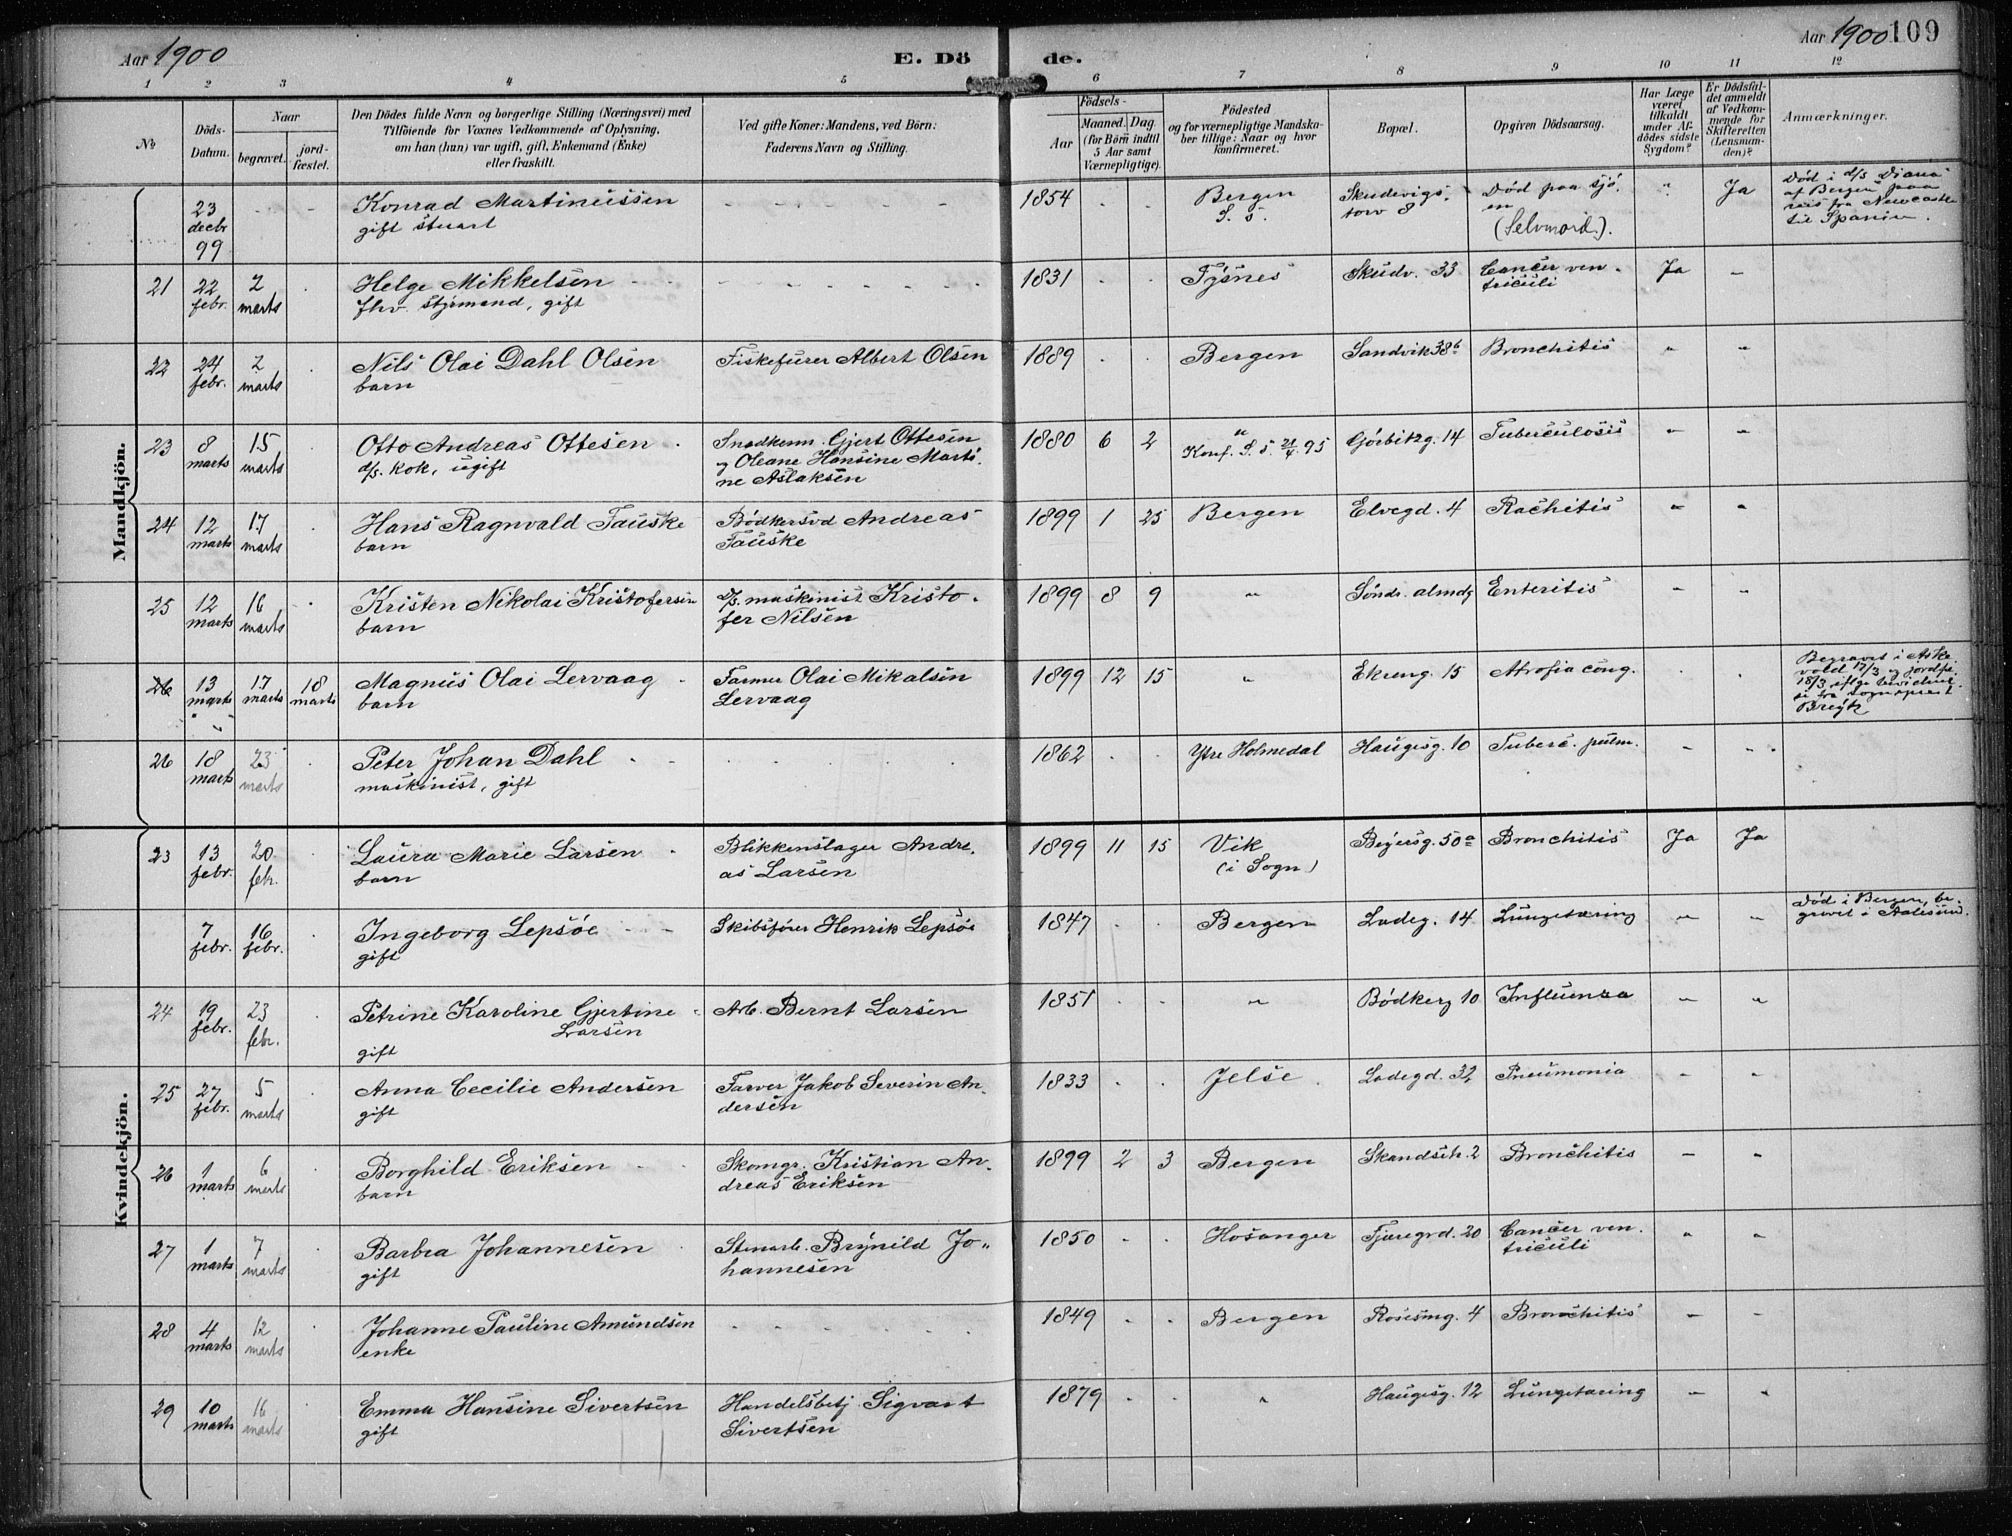 Aar 1900
E. Dö
de.
Aar 1900
109
1 2 3 4 5 6 7 8 9 10 11 12
No
Döds-
Datum.
Naar
begravet.
jord-
fæstet.
Den Dödes fulde Navn og borgerlige Stilling (Næringsvei) med
Tilföiende for Voxnes Vedkommende af Oplysning,
om han (hun) var ugift, gift, Enkemand (Enke)
eller fraskilt.
Ved gifte Koner: Mandens, ved Börn:
Faderens Navn og Stilling.
Födsels-
Aar
Maaned. Dag.
(for Börn indtil
5 Aar samt
Værnepligtige).
Födested
og for værnepligtige Mandska-
ber tillige: Naar og hvor
konfirmeret.
Bopæl.
Opgiven Dödsaarsag.
Har Læge
været
tilkaldt
under Af-
dödes sidste
Sygdom?
Er Dödsfal-
det anmeldt
af Vedkom-
mende for
Skifteretten
(Lensman-
den)?
Anmærkninger.
Mandkjön.
23
decbr
99
Konrad Martinussen
gift stuart
1854
Bergen
S. s.
Skudevigs-
torv 8
Död paa sjö-
en
(Selvmord).
"
Ja
Död i d/s Diana
af Bergen paa
reis fra Newcastle
til Spanien.
21
22
febr.
2
marts
Helge Mikkelsen
fhv. styrmand, gift
1831
Tysnes
Skudv. 33
Cancer ven-
triculi
Ja
"
22
24
febr.
2
marts
Nils Olai Dahl Olsen
barn
Fiskefürer Albert Olsen
1889
Bergen
Sandvik 38 b
Bronchitis
" "
23
8
marts
15
marts
Otto Andreas Ottesen
d/s. kok, ugift
Snedkerm. Gjert Ottesen
og Oleane Hansine Marti-
ne Aslaksen
1880 6 2
"
Konf. S. s. 21/4 95
Görbitzg. 14
Tuberculosis
" "
24
12
marts
17
marts
Hans Ragnvald Tauske
barn
Bödkersvd Andreas
Tauske
1899 1 25
Bergen
Elvegd. 4
Rachitis
" "
25
12
marts
16
marts
Kristen Nikolai Kristofersen
barn
d/s. maskinist Kristo-
fer Nilsen
1899 8 9
"
Söndr. almdg
Enteritis
" "
26
13
marts
17
marts
18
marts
Magnus Olai Lervaag
barn
Farmer Olai Mikalsen
Lervaag
1899 12 15
"
Ekreng. 15
Atrofia cong.
Begravet i Aske
vold 17/3 og jordfs.
18/3 iflge bevidnel-
se fra sognepræst
26
18
marts
23
marts
Peter Johan Dahl
maskinist, gift
1862
Ytre Holmedal
Haugesg. 10
Tuberc. pulm.
" "
Kvindekjön.
23
13
febr.
20
feb.
Laura Marie Larsen
barn
Blikkenslager Andre-
as Larsen
1899 11 15
Vik
(i Sogn)
Beyersg. 50 a
Bronchitis
Ja Ja
7
febr.
16
febr.
Ingeborg Lepsöe
gift
Skibsförer Henrik Lepsöe
1847
Bergen
Ladeg. 14
Lungetæring
" "
Död i Bergen, be-
gravet i Aalesund.
24
19
febr.
23
febr.
Petrine Karoline Gjertine
Larsen
gift
Arb. Bernt Larsen
1851
"
Bödkerg 10
Influenza
" "
25
27
febr.
5
marts
Anna Cecilie Andersen
gift
Farver Jakob Severin An-
dersen
1833
Jelse
Ladegd. 32
Pneumonia
" "
26
1
marts
6
marts
Borghild Eriksen
barn
Skomgr. Kristian An-
dreas Eriksen
1899 2 3
Bergen
Skandsitr. 2
Bronchitis
" "
27
1
marts
7
marts
Barbra Johannesen
gift
Stenarb. Brynild Jo-
hannesen
1850
Hosanger
Fjæregrd. 20
Cancer ven-
triculi
" "
28
4
marts
12
marts
Johanne Pauline Amundsen
enke
1849
Bergen
Rosesmg. 4
Bronchitis
" "
29
10
marts
16
marts
Emma Hansine Sivertsen
gift
Handelsbetj. Sigvart
Sivertsen
1879
"
Haugesg. 12
Lungetæring
" "